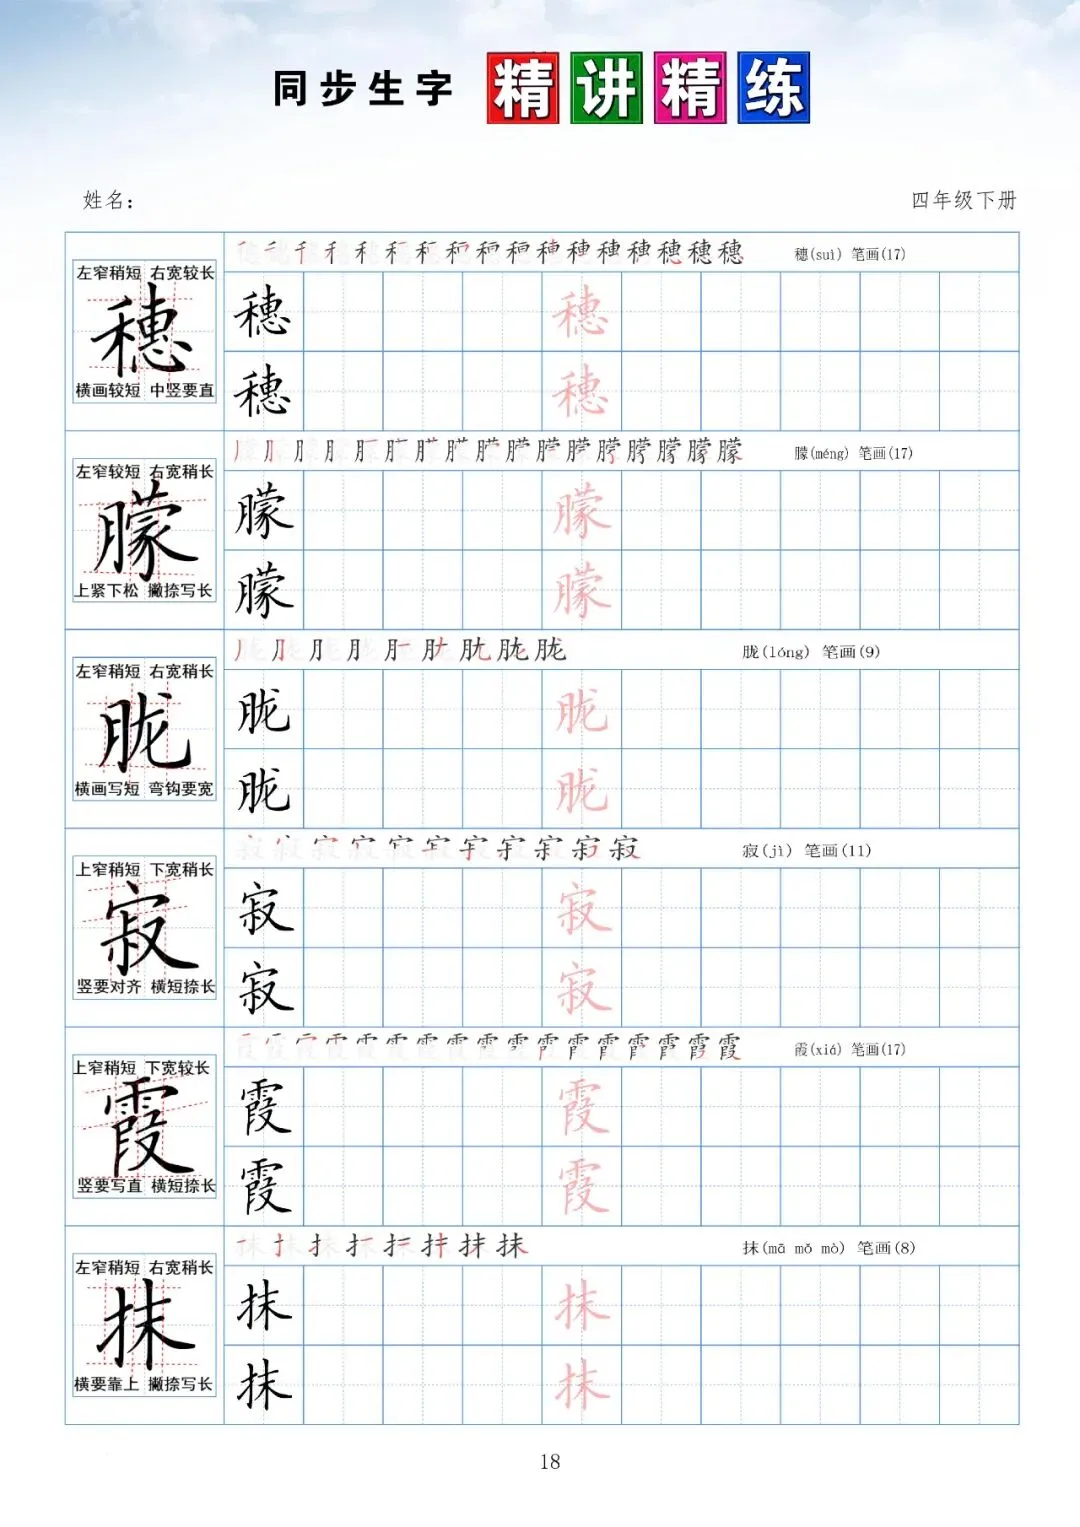 同步生字 精讲精练
姓名： 四年级下册
左窄稍短 右宽较长
穗
横画较短 中竖要直
穗(suì) 笔画(17)
穗 穗
穗 穗
左窄较短 右宽稍长
朦
上紧下松 撇捺写长
朦(méng) 笔画(17)
朦 朦
朦 朦
左窄稍短 右宽稍长
胧
横画写短 弯钩要宽
胧(lóng) 笔画(9)
胧 胧
胧 胧
上窄稍短 下宽稍长
寂
竖要对齐 横短捺长
寂(jì) 笔画(11)
寂 寂
寂 寂
上窄稍短 下宽较长
霞
竖要写直 横短捺长
霞(xiá) 笔画(17)
霞 霞
霞 霞
左窄稍短 右宽稍长
抹
横要靠上 撇捺写长
抹(mā mǒ mò) 笔画(8)
抹 抹
抹 抹
18